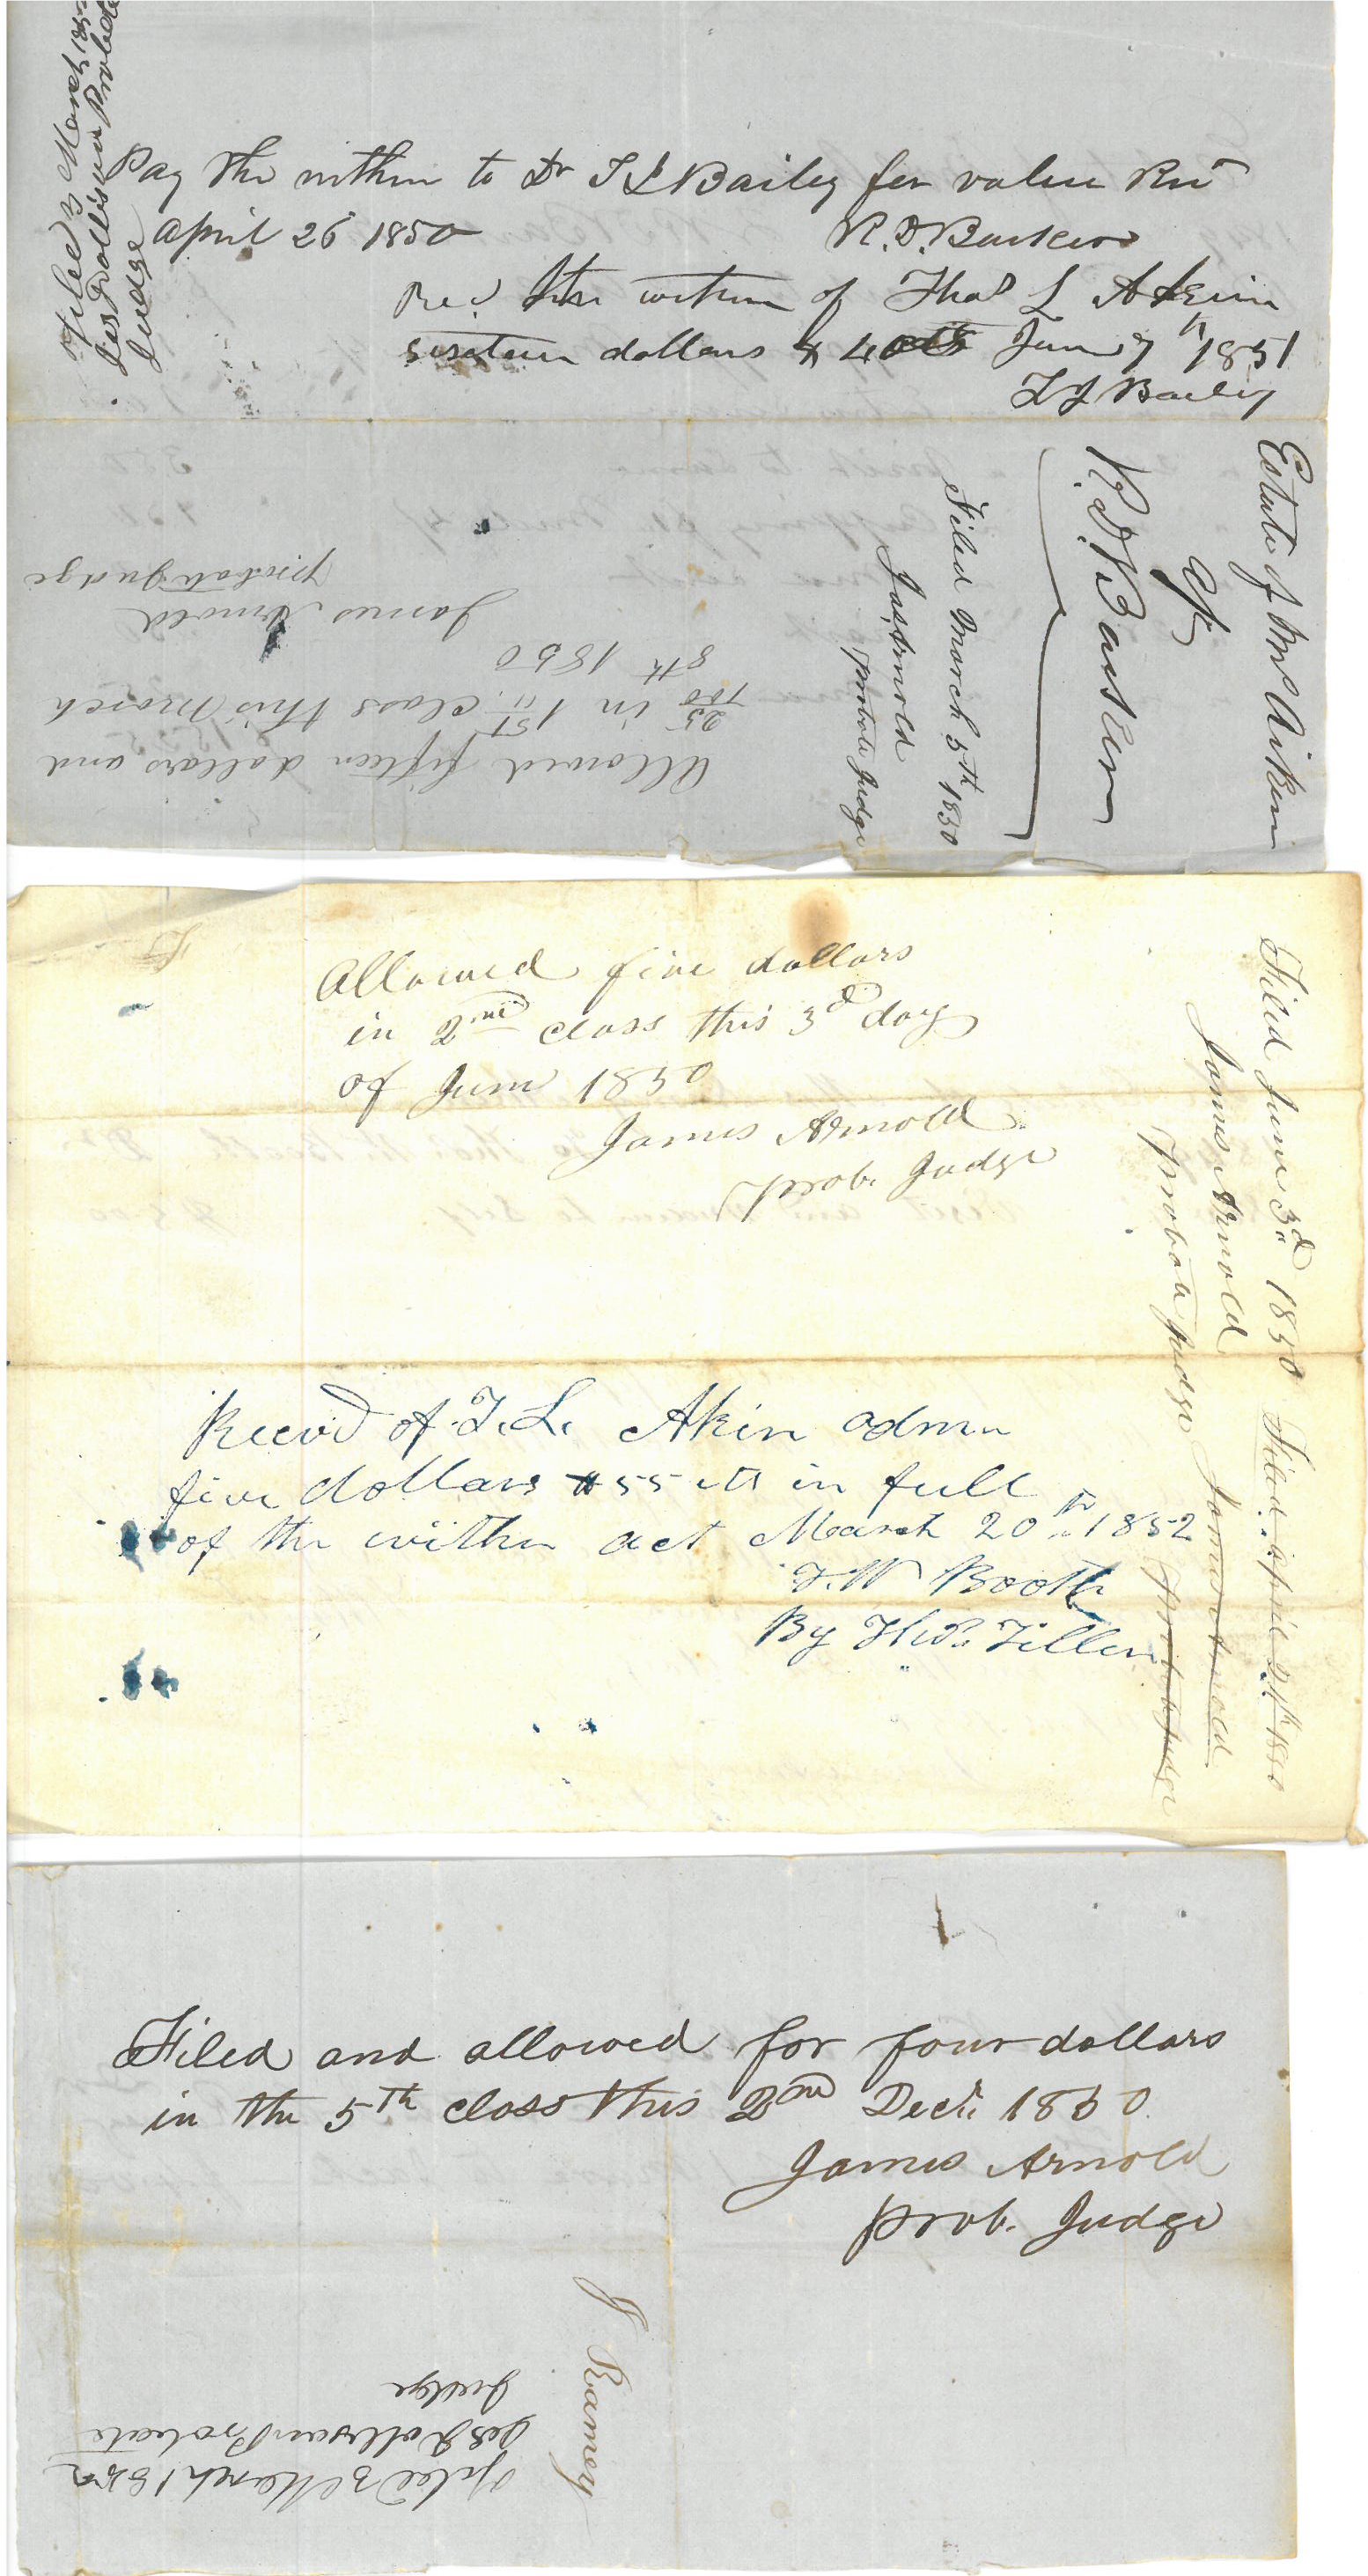 Pay the within to Dr T L Bailey for value Recd
april 26 1850
R. D. Barker
Recd the within of Thos L Akin
sixteen dollars & 40cts Jun 7th 1851
T L Bailey
Filed 3 March 185
Jas Dollison Probate
Judge
Estate of Wm Aiken
R. D. Barker
Filed March 5th 1850
Jas, Arnold
probate Judge
Allowed fifteen dollars and
25/100 in 1st class this March
8th 1850
James Arnold
probate Judge
Allowed five dollars
in 2nd class this 3d day
of June 1850
James Arnold
prob. Judge
Filed June 3d 1850
James Arnold
Probate Judge
Filed april 21th 1850
James Arnold
Probate Judge
Recevd of T. L. Akin admn
five dollars & 55 cts in full
of the within act March 20th 1852
T. W Booth
By
Filed and allowed for four dollars
in the 5th class this 2nd Decr. 1850
James Arnold
prob. Judge
J Ramey
Filed 3 March 185
Jas Dollison Probate
Judge